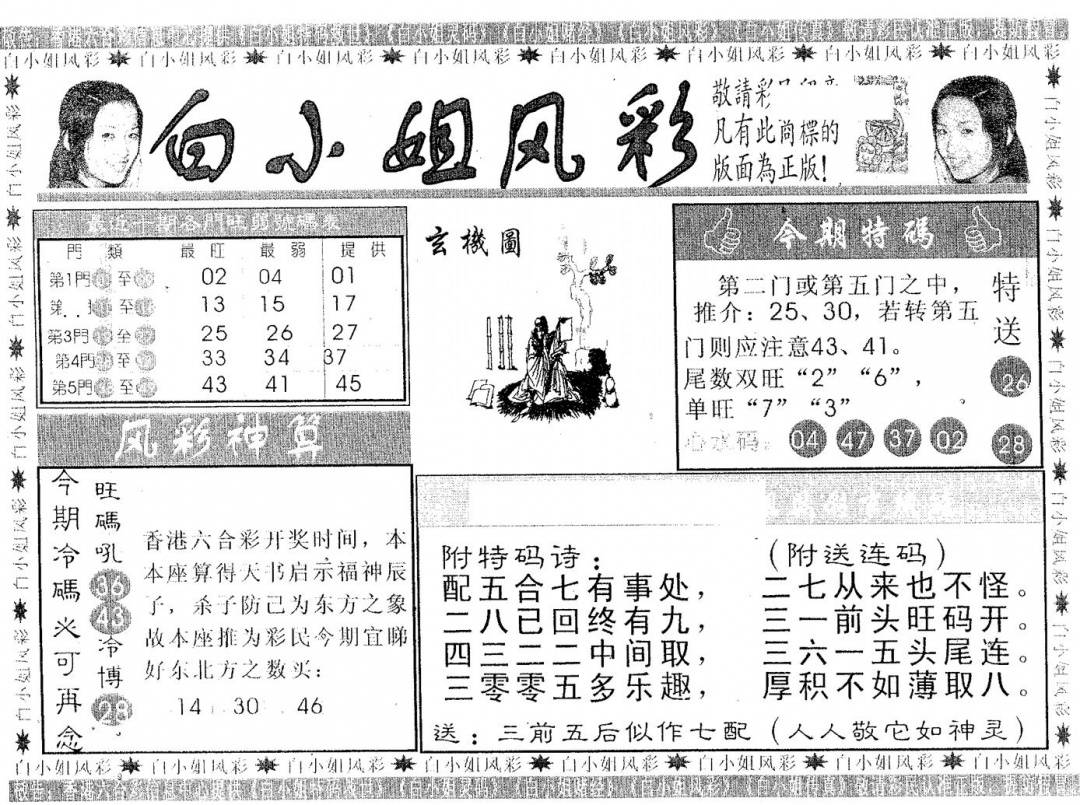 白小姐风彩 白小姐风彩 白小姐风彩 白小姐风彩 白小姐风彩 白小姐风彩 白小姐风彩 白小姐风彩
白小姐风彩
敬請彩
凡有此尚標的
版面為正版!
最近十期各門旺弱號碼表
門 類 最旺 最弱 提供
第1門 至 02 04 01
第 至 13 15 17
第3門 至 25 26 27
第4門 至 33 34 37
第5門 至 43 41 45
玄機圖
今期特码
第二门或第五门之中，
推介：25、30，若转第五
门则应注意43、41。
尾数双旺“2”“6”，
单旺“7”“3”
心水码：04 47 37 02
特送
26
28
风彩神算
今期冷碼火可再念
旺碼吼
36
43
冷博
28
香港六合彩开奖时间，本
本座算得天书启示福神辰
子，杀子防己为东方之象
故本座推为彩民今期宜睇
好东北方之数买：
14 30 46
附特码诗： （附送连码）
配五合七有事处， 二七从来也不怪。
二八已回终有九， 三一前头旺码开。
四三二二中间取， 三六一五头尾连。
三零零五多乐趣， 厚积不如薄取八。
送：三前五后似作七配（人人敬它如神灵）
白小姐风彩 白小姐风彩 白小姐风彩 白小姐风彩 白小姐风彩 白小姐风彩 白小姐风彩 白小姐风彩